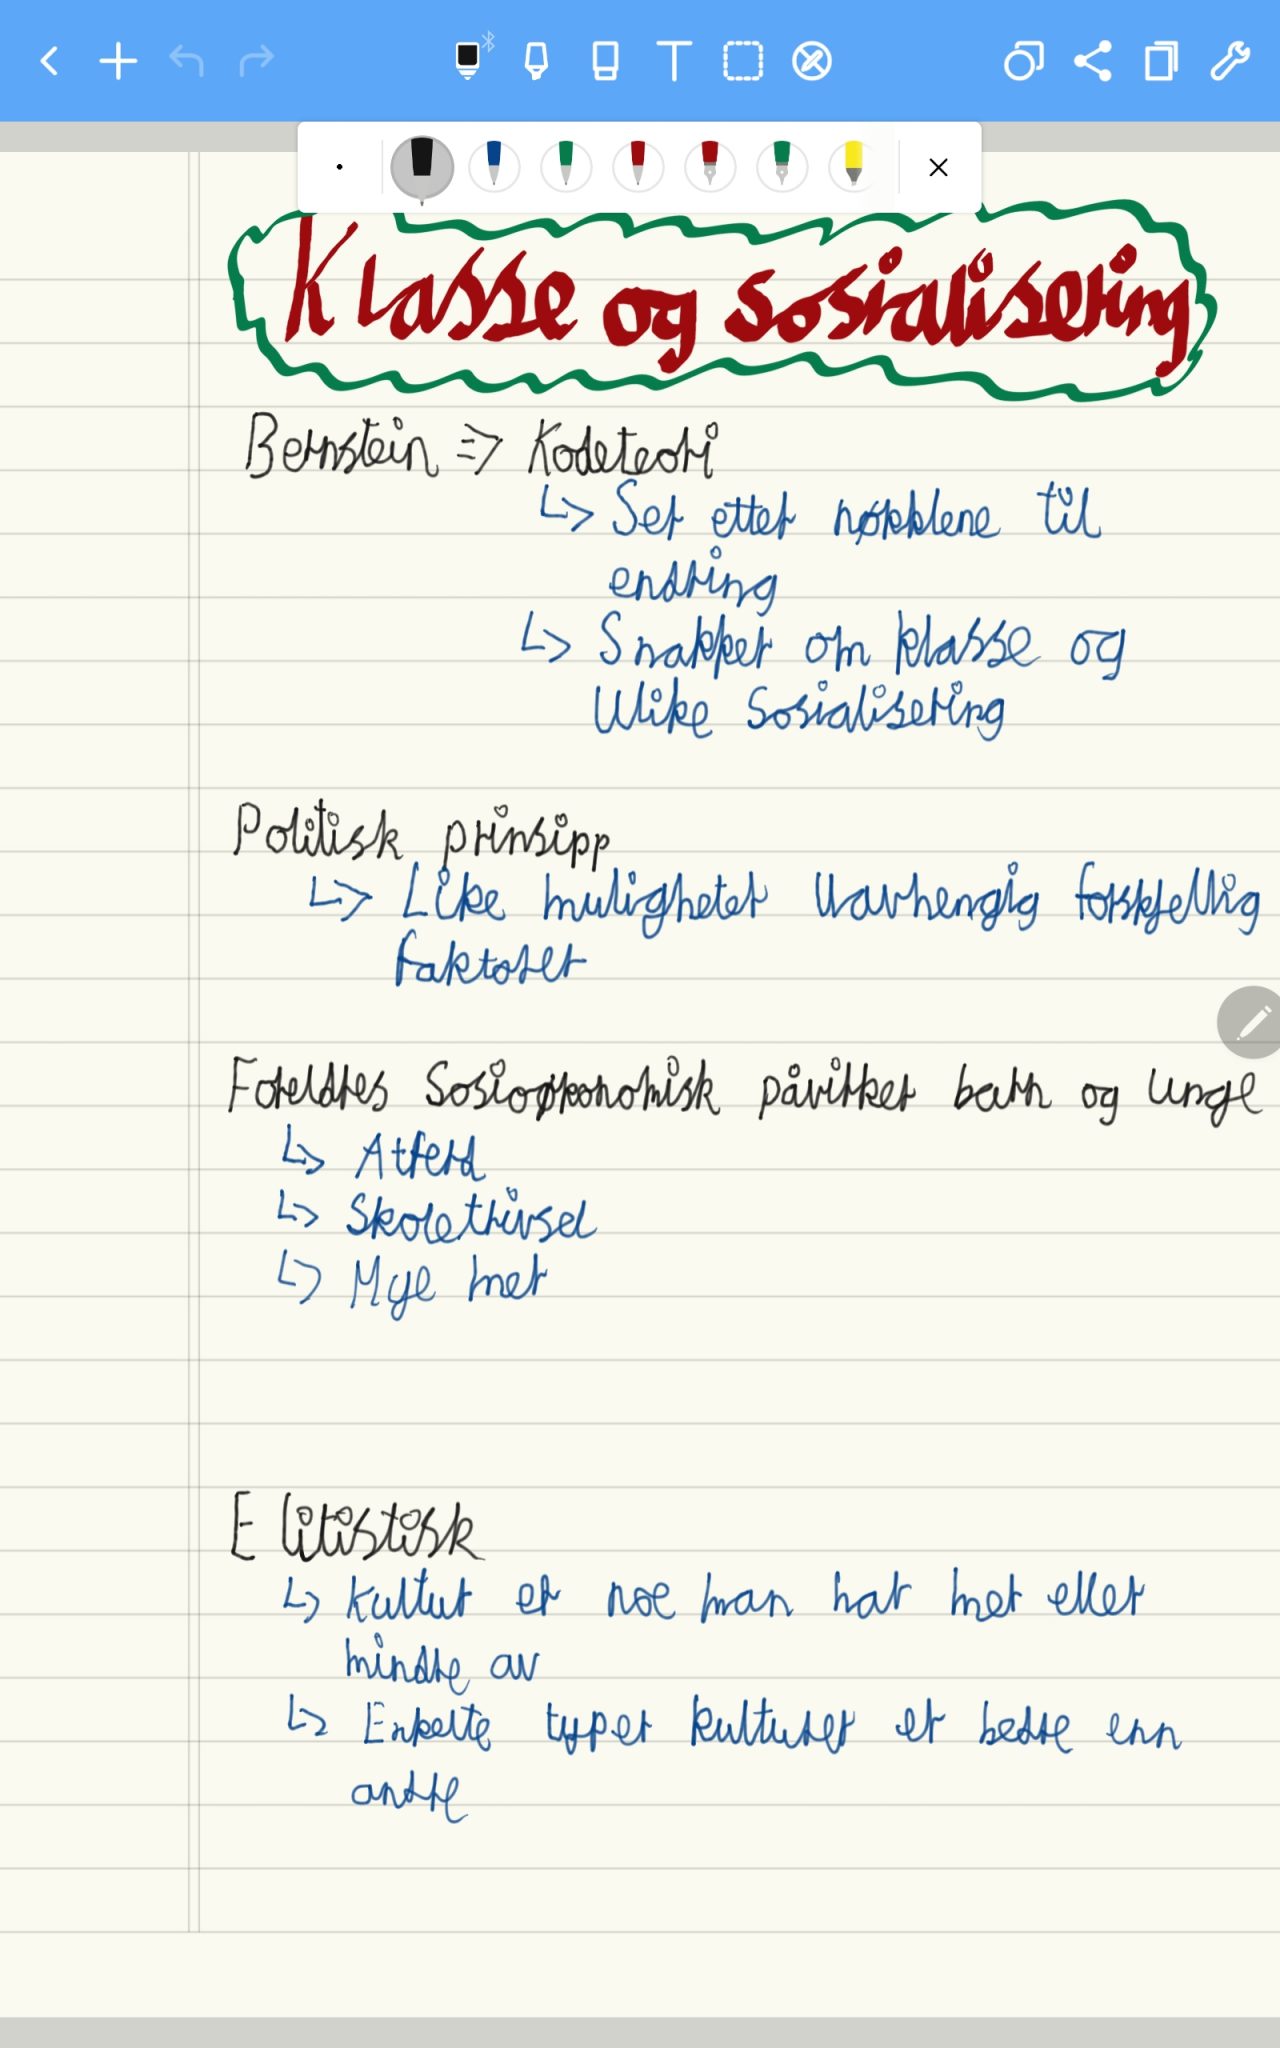 Klasse og sosialisering
Bernstein => Kodeteori
↳ Ser etter nøkklene til
endring
↳ Snakker om klasse og
Ulike Sosialisering
Politisk prinsipp
↳ Like muligheter Uavhengig forskjellig
faktorer
Foreldres Sosioøkonomisk påvirker barn og Unge
↳ Atferd
↳ Skoletrivsel
↳ Mye mer
Elitistisk
↳ Kultur er noe man har mer eller
mindre av
↳ Enkelte typer kulturer er bedre enn
andre